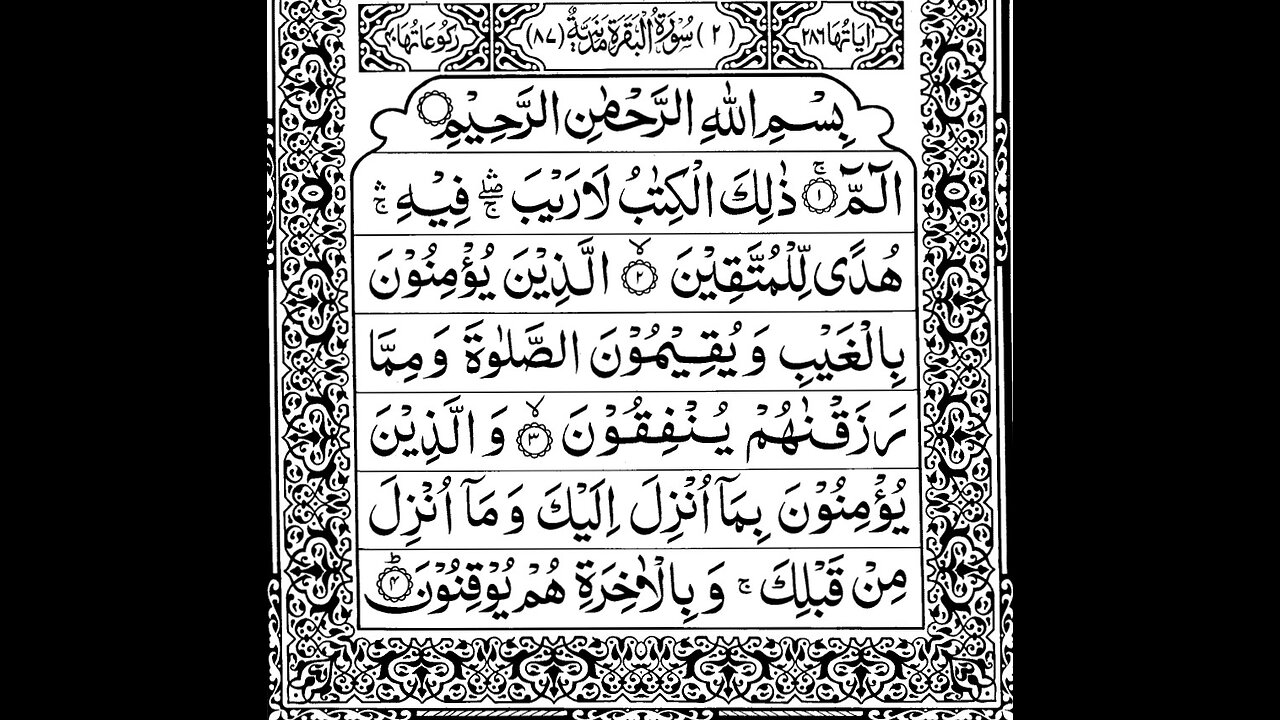 اٰیَاتُهَا ٢٨٦ (٢) سُوْرَةُ الْبَقَرَةِ مَدَنِیَّةٌ (٨٧) رُكُوْعَاتُهَا ٤٠
بِسْمِ اللّٰهِ الرَّحْمٰنِ الرَّحِیْمِ
الٓـمّٓ ۚ﴿١﴾ ذٰلِكَ الْكِتٰبُ لَا رَیْبَ ۛۖۚ فِیْهِ ۛۚ
هُدًى لِّلْمُتَّقِیْنَ ۙ﴿٢﴾ الَّذِیْنَ یُؤْمِنُوْنَ
بِالْغَیْبِ وَ یُقِیْمُوْنَ الصَّلٰوةَ وَ مِمَّا
رَزَقْنٰهُمْ یُنْفِقُوْنَ ۙ﴿٣﴾ وَ الَّذِیْنَ
یُؤْمِنُوْنَ بِمَاۤ اُنْزِلَ اِلَیْكَ وَ مَاۤ اُنْزِلَ
مِنْ قَبْلِكَ ۚ وَ بِالْاٰخِرَةِ هُمْ یُوْقِنُوْنَ ؕ﴿٤﴾